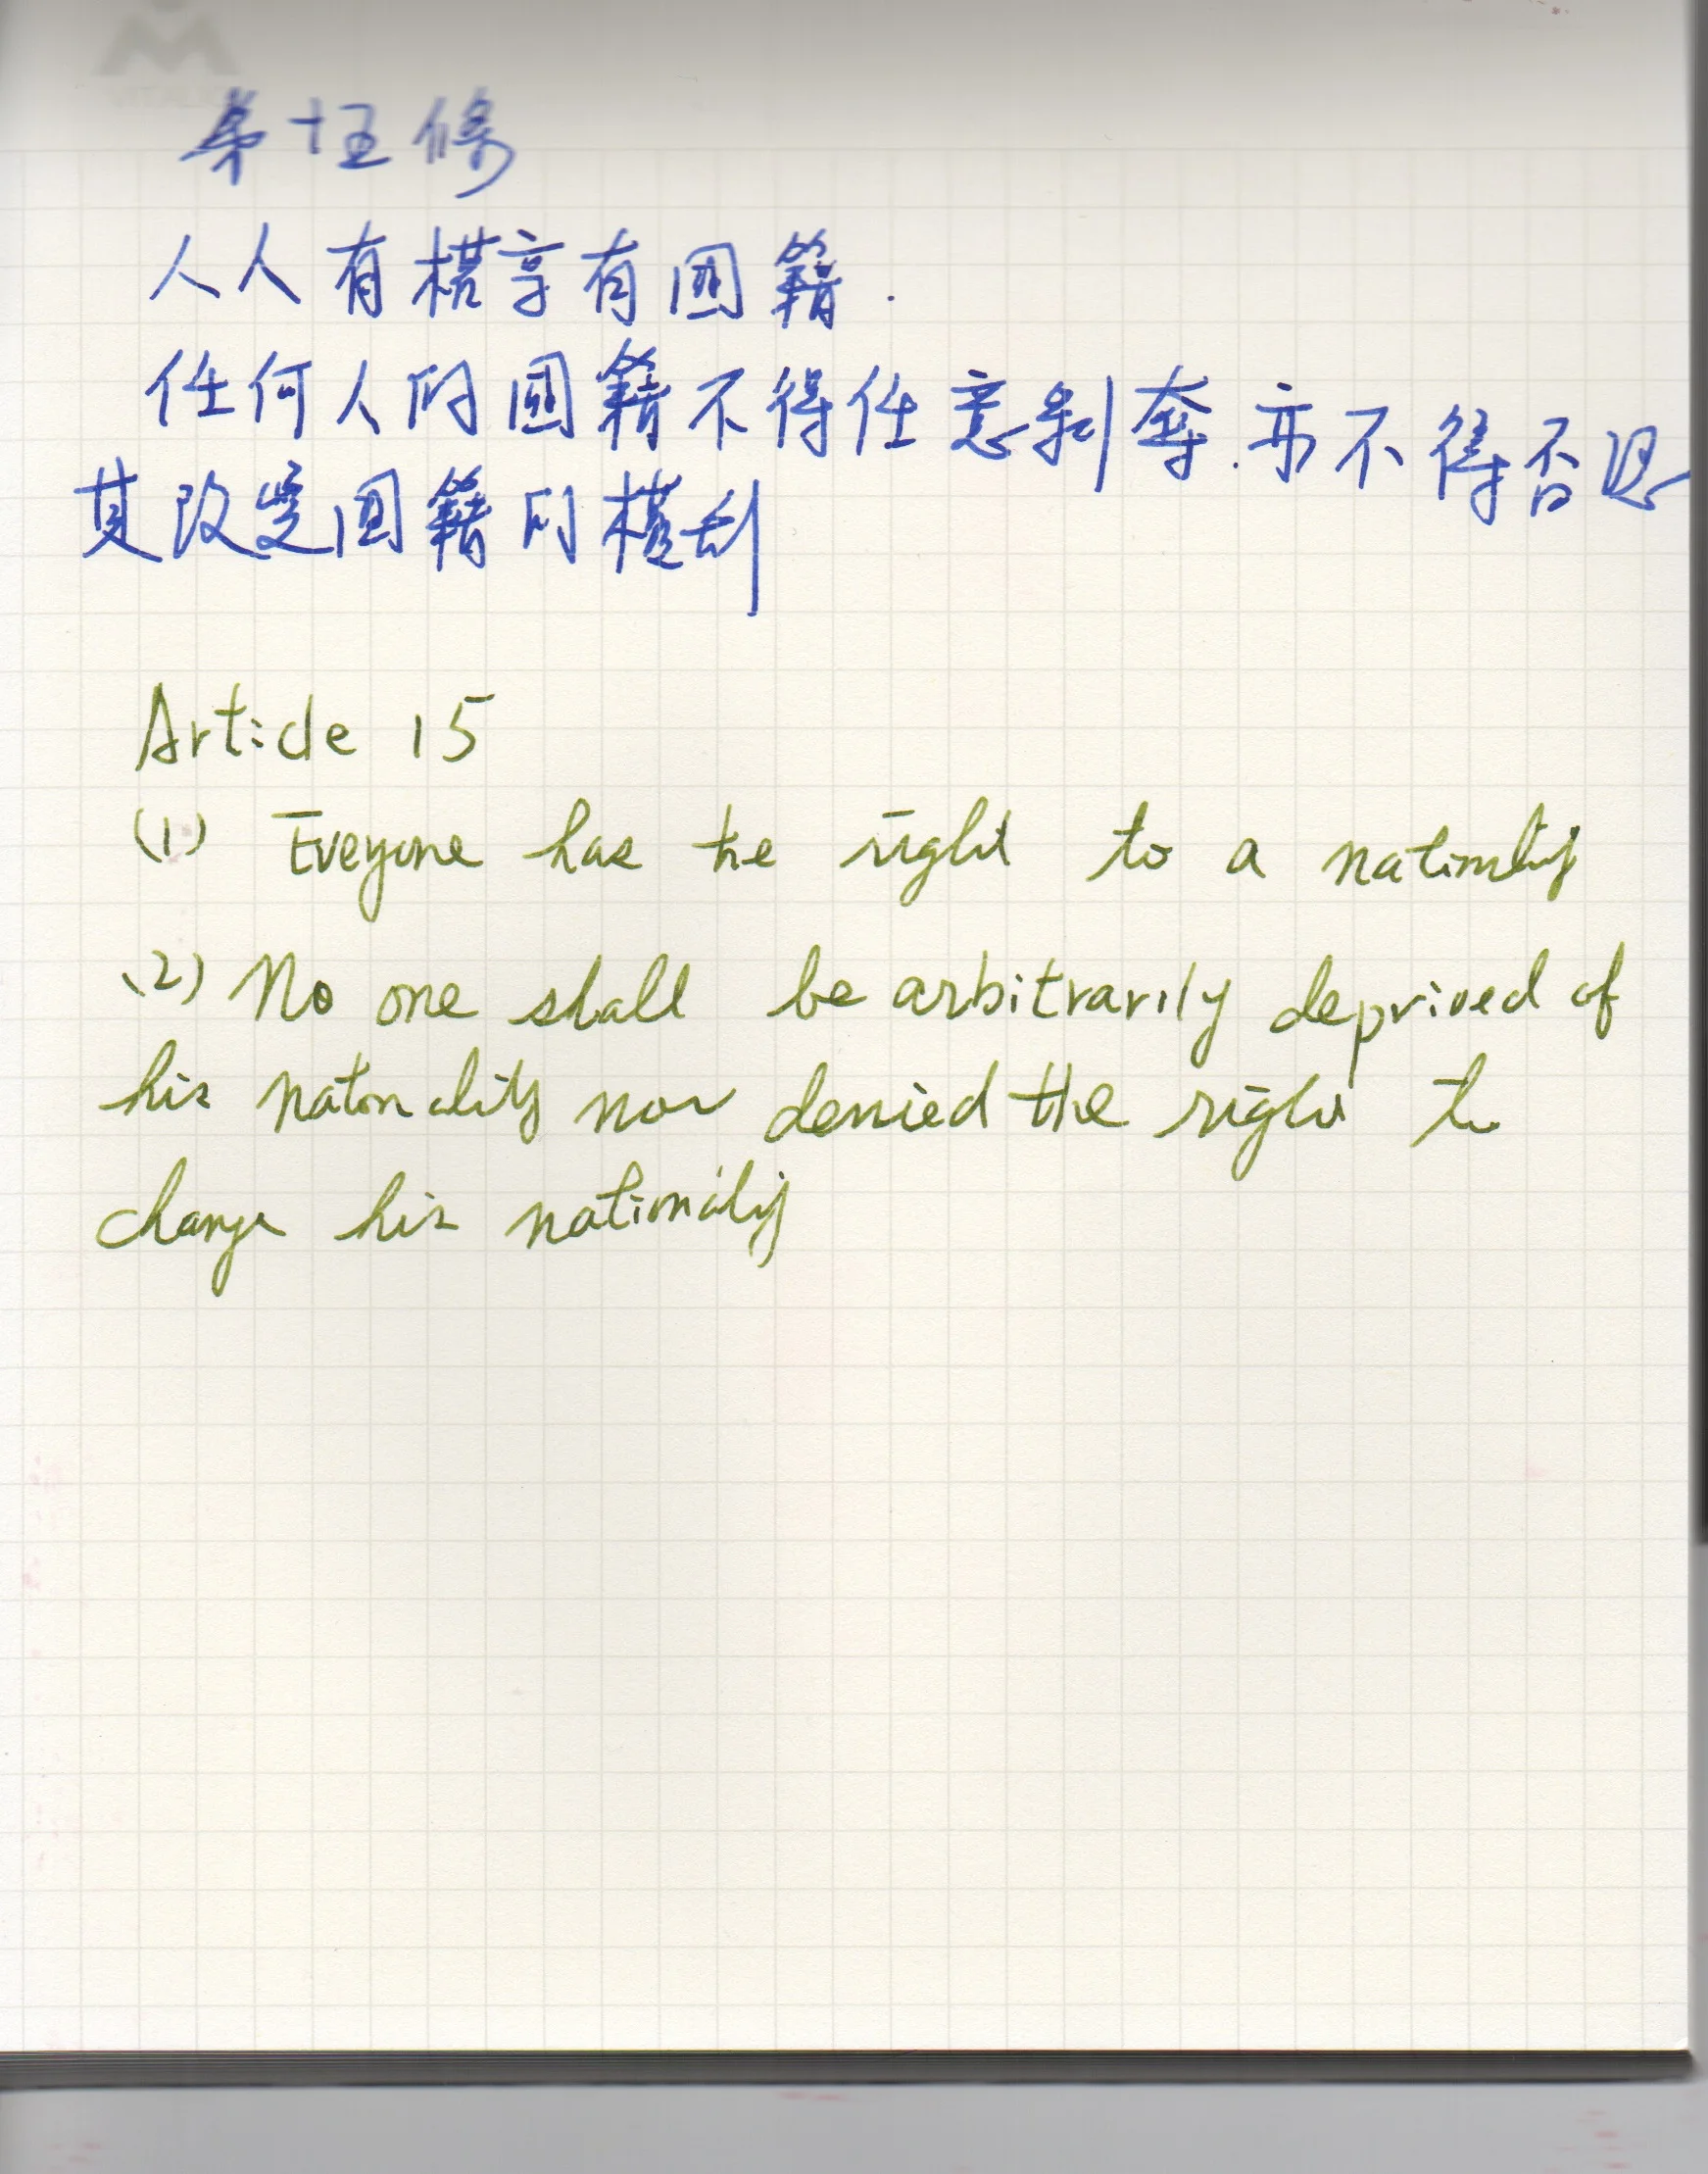 第十五條
人人有權享有國籍.
任何人的國籍不得任意剝奪.亦不得否認
其改變國籍的權利
Article 15
(1) Eveyone has the right to a nationality
(2) No one shall be arbitrarily deprived of
his nationality nor denied the right to
change his nationality